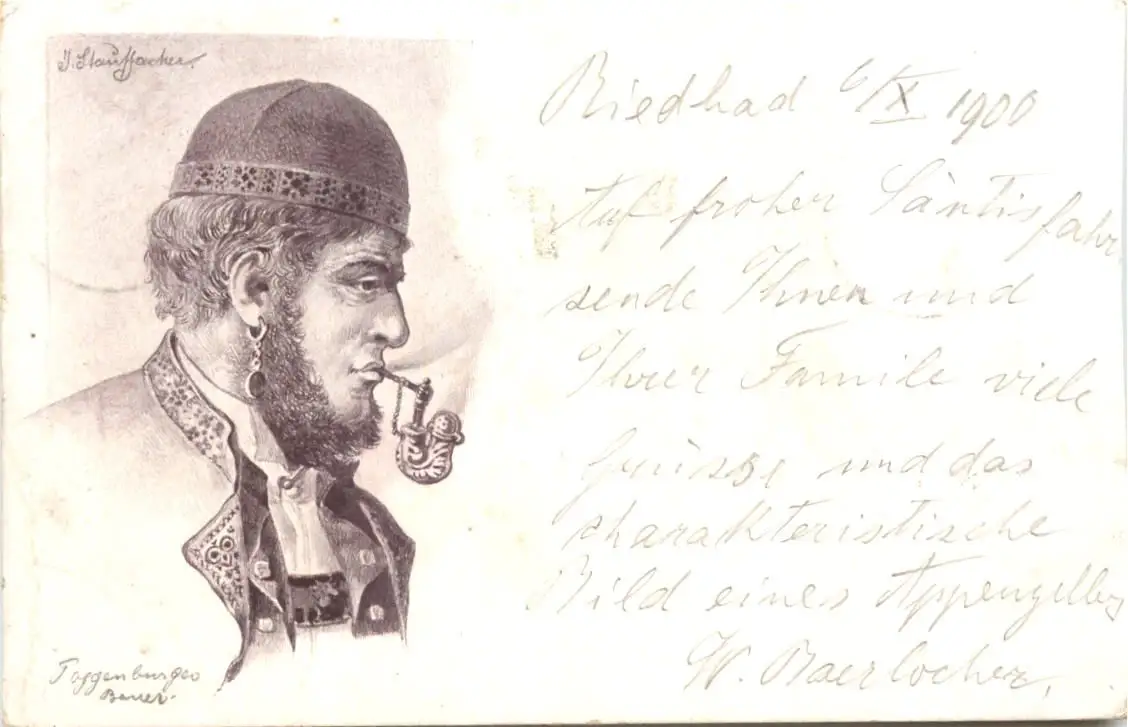 J. Stauffacher.
Riedbad 6/X 1900
Auf froher Säntisfahrt
sende Ihnen und
Ihrer Familie viele
Grüsse und das
charakteristische
Bild eines Appenzellers
W. Baerlocher.
Toggenburger
Bauer.